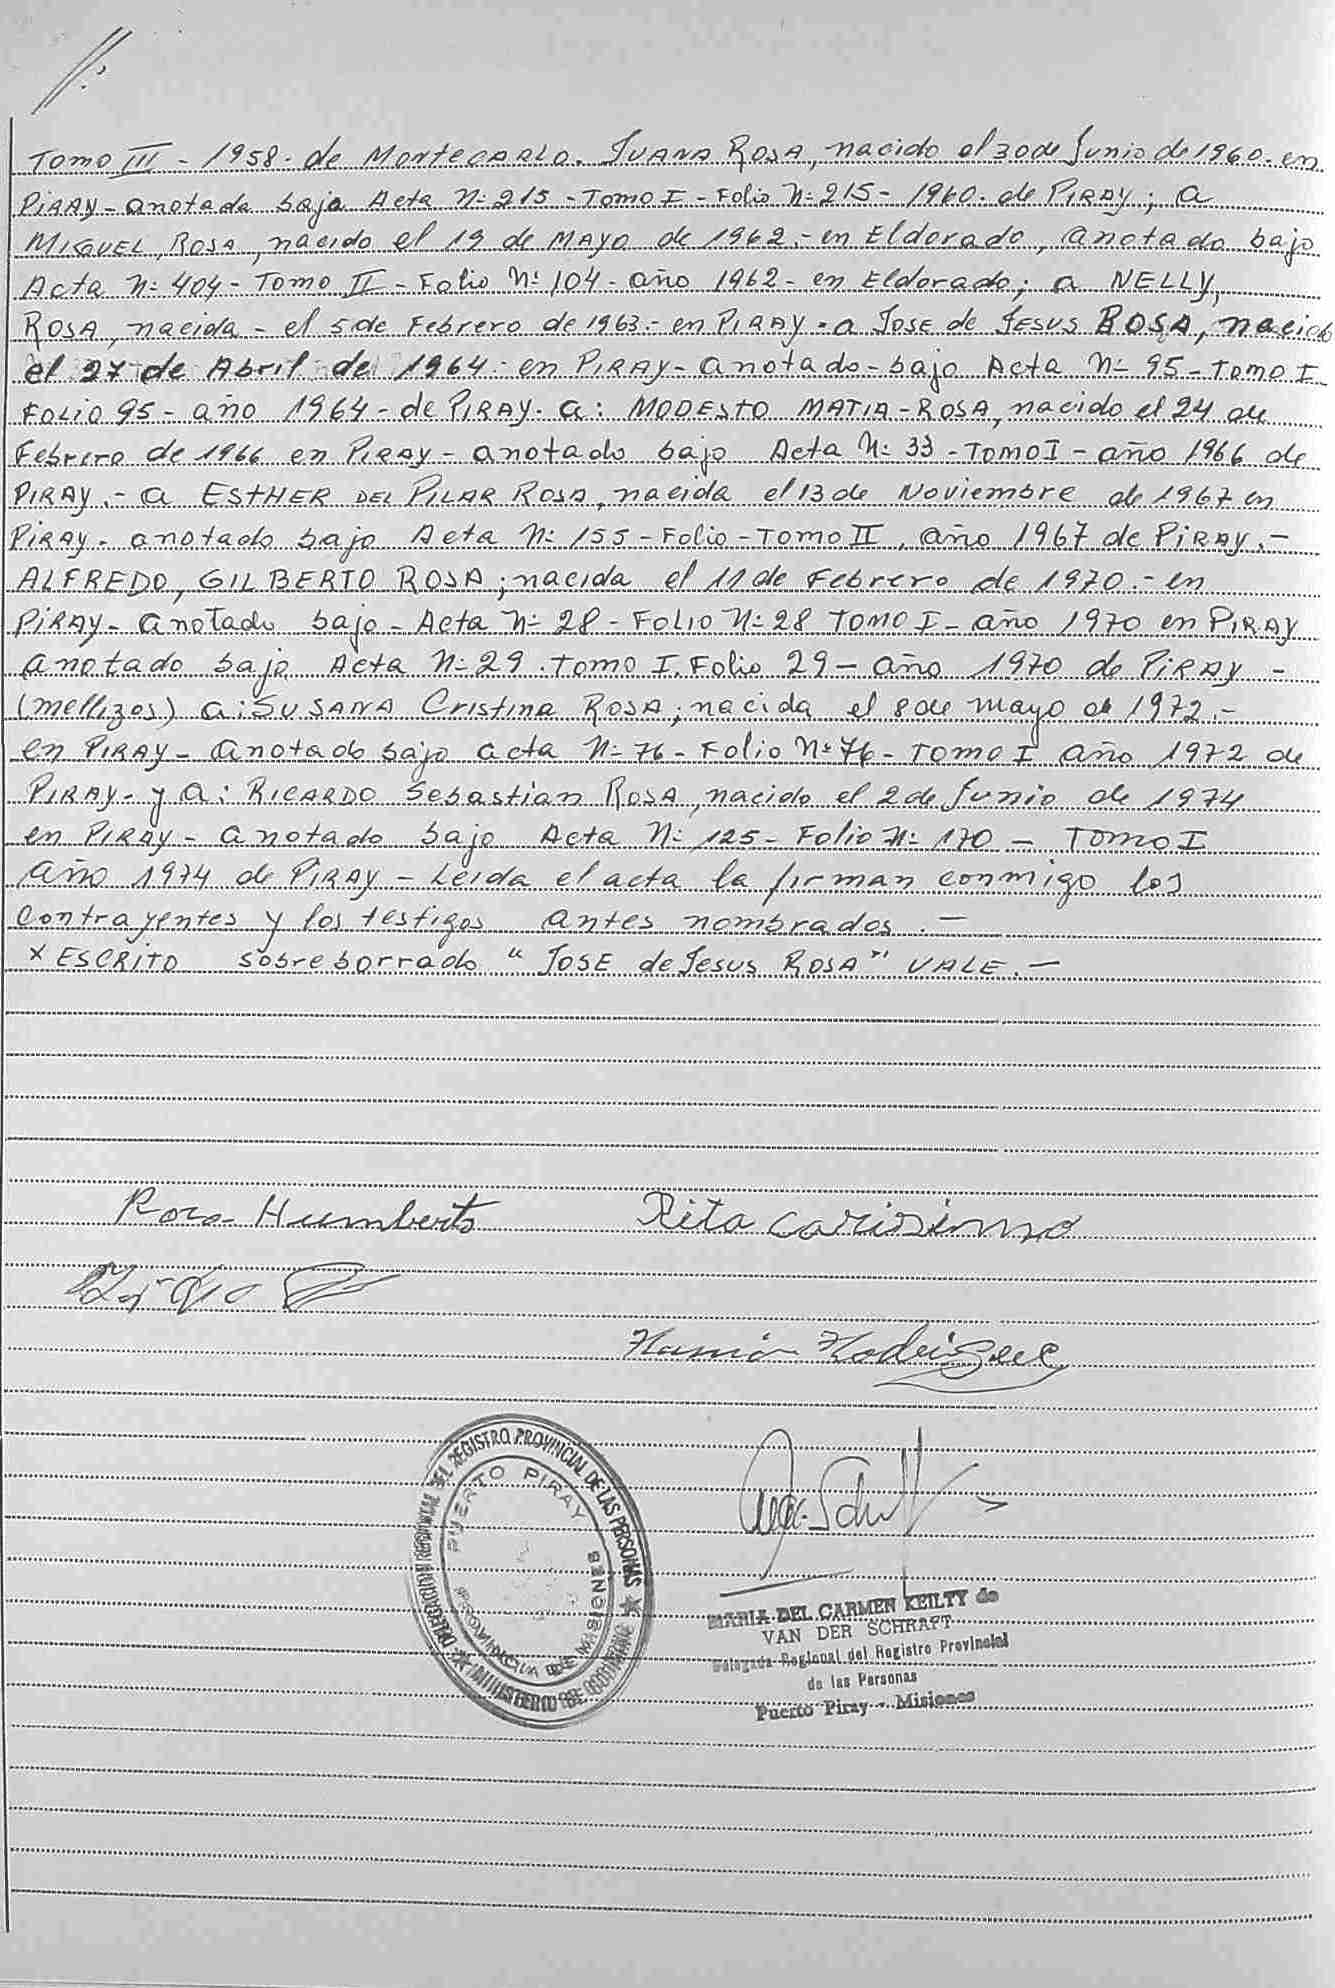 Tomo III - 1958. de Montecarlo. JUANA ROSA, nacido el 30 de Junio de 1960. en
PIRAY - anotada baja Acta Nº 215 - Tomo I - Folio Nº 215 - 1960. de PIRAY; a
MIGUEL, ROSA, nacido el 19 de MAYO de 1962.- en Eldorado, anotado bajo
Acta Nº 404 - Tomo II - Folio Nº 104 - año 1962 - en Eldorado; a NELLY,
ROSA, nacida - el 5 de Febrero de 1963.- en PIRAY - a JOSE de JESUS ROSA, nacido
el 27 de Abril de 1964 - en PIRAY - anotado - bajo Acta Nº 95 - Tomo I
FOLIO 95 - año 1964 - de PIRAY. a: MODESTO MATIA - ROSA, nacido el 24 de
Febrero de 1966 en PIRAY - anotado bajo Acta Nº 33 - Tomo I - año 1966 de
PIRAY.- a ESTHER DEL PILAR ROSA, nacida el 13 de Noviembre de 1967 en
PIRAY - anotado bajo Acta Nº 155 - Folio - Tomo II, año 1967 de PIRAY.-
ALFREDO, GILBERTO ROSA; nacida el 11 de Febrero de 1970.- en
PIRAY - anotado bajo - Acta Nº 28 - FOLIO Nº 28 TOMO I - año 1970 en PIRAY
anotado bajo Acta Nº 29. Tomo I. Folio 29 - año 1970 de PIRAY -
(mellizos) a: SUSANA Cristina ROSA; nacida el 8 de mayo de 1972.-
en PIRAY - anotado bajo acta Nº 76 - Folio Nº 76 - Tomo I año 1972 de
PIRAY - y a: RICARDO Sebastian ROSA, nacido el 2 de Junio de 1974
en PIRAY - anotado bajo Acta Nº 125 - Folio Nº 170 - TOMO I
año 1974 de PIRAY - Leida el acta la firman conmigo los
contrayentes y los testigos antes nombrados. -
x ESCRITO sobreborrado "JOSE de Jesus ROSA" VALE. -
Rosa Humberto Rita Carisimo
Ramón Rodriguez
DELEGACION REGIONAL DEL REGISTRO PROVINCIAL DE LAS PERSONAS
MINISTERIO DE GOBIERNO
PUERTO PIRAY
PROVINCIA DE MISIONES
MARIA DEL CARMEN KEILTY de
VAN DER SCHRAFT
Delegada Regional del Registro Provincial
de las Personas
Puerto Piray - Misiones